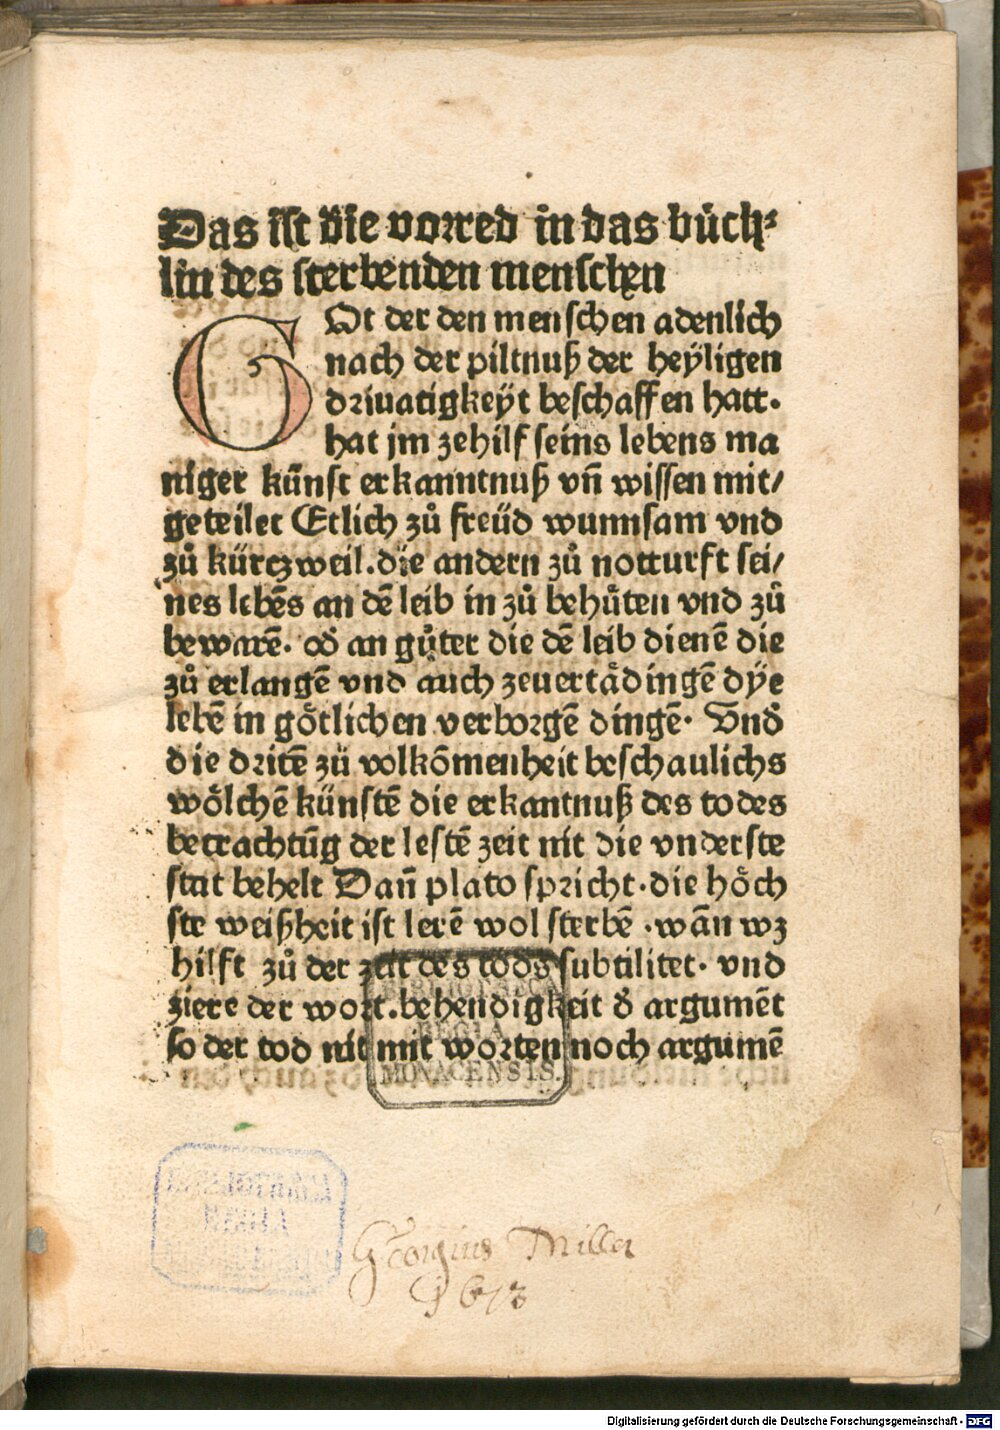 Das ist die vorred in das bůch⸗
lin des sterbenden menschen
GOt der den menschen adenlich
nach der piltnuß der heyligen
driuatigkeyt beschaffen hatt.
hat jm zehilf seins lebens ma
niger künst erkanntnuß vn̄ wissen mit/
geteilet Etlich zů freüd wunnsam vnd
zů kürczweil. die andern zů notturft sei/
nes lebēs an dē leib in zů behůten vnd zů
bewarē. od̄ an gůter die dē leib dienē die
zů erlangē vnd auch zeuertådingē dÿe
lebē in gôtlichen verborgē dingē. Vnd̄
die dritē zü volkōmenheit beschaulichs
wôlchē künstē die erkantnuß des todes
betrachtūg der lestē zeit nit die vnderste
stat behelt Dan̄ plato spricht. die hôch
ste weißheit ist lerē wol sterbē . wān wz
hilft zů der zeit des tods subtilitet. vnd
ziere der wort. behendigkeit d̄ argumēt
so der tod nit mit worten noch argumē
BIBLIOTHECA
REGIA
MONACENSIS.
Georgius Miller
1673
Digitalisierung gefördert durch die Deutsche Forschungsgemeinschaft - DFG